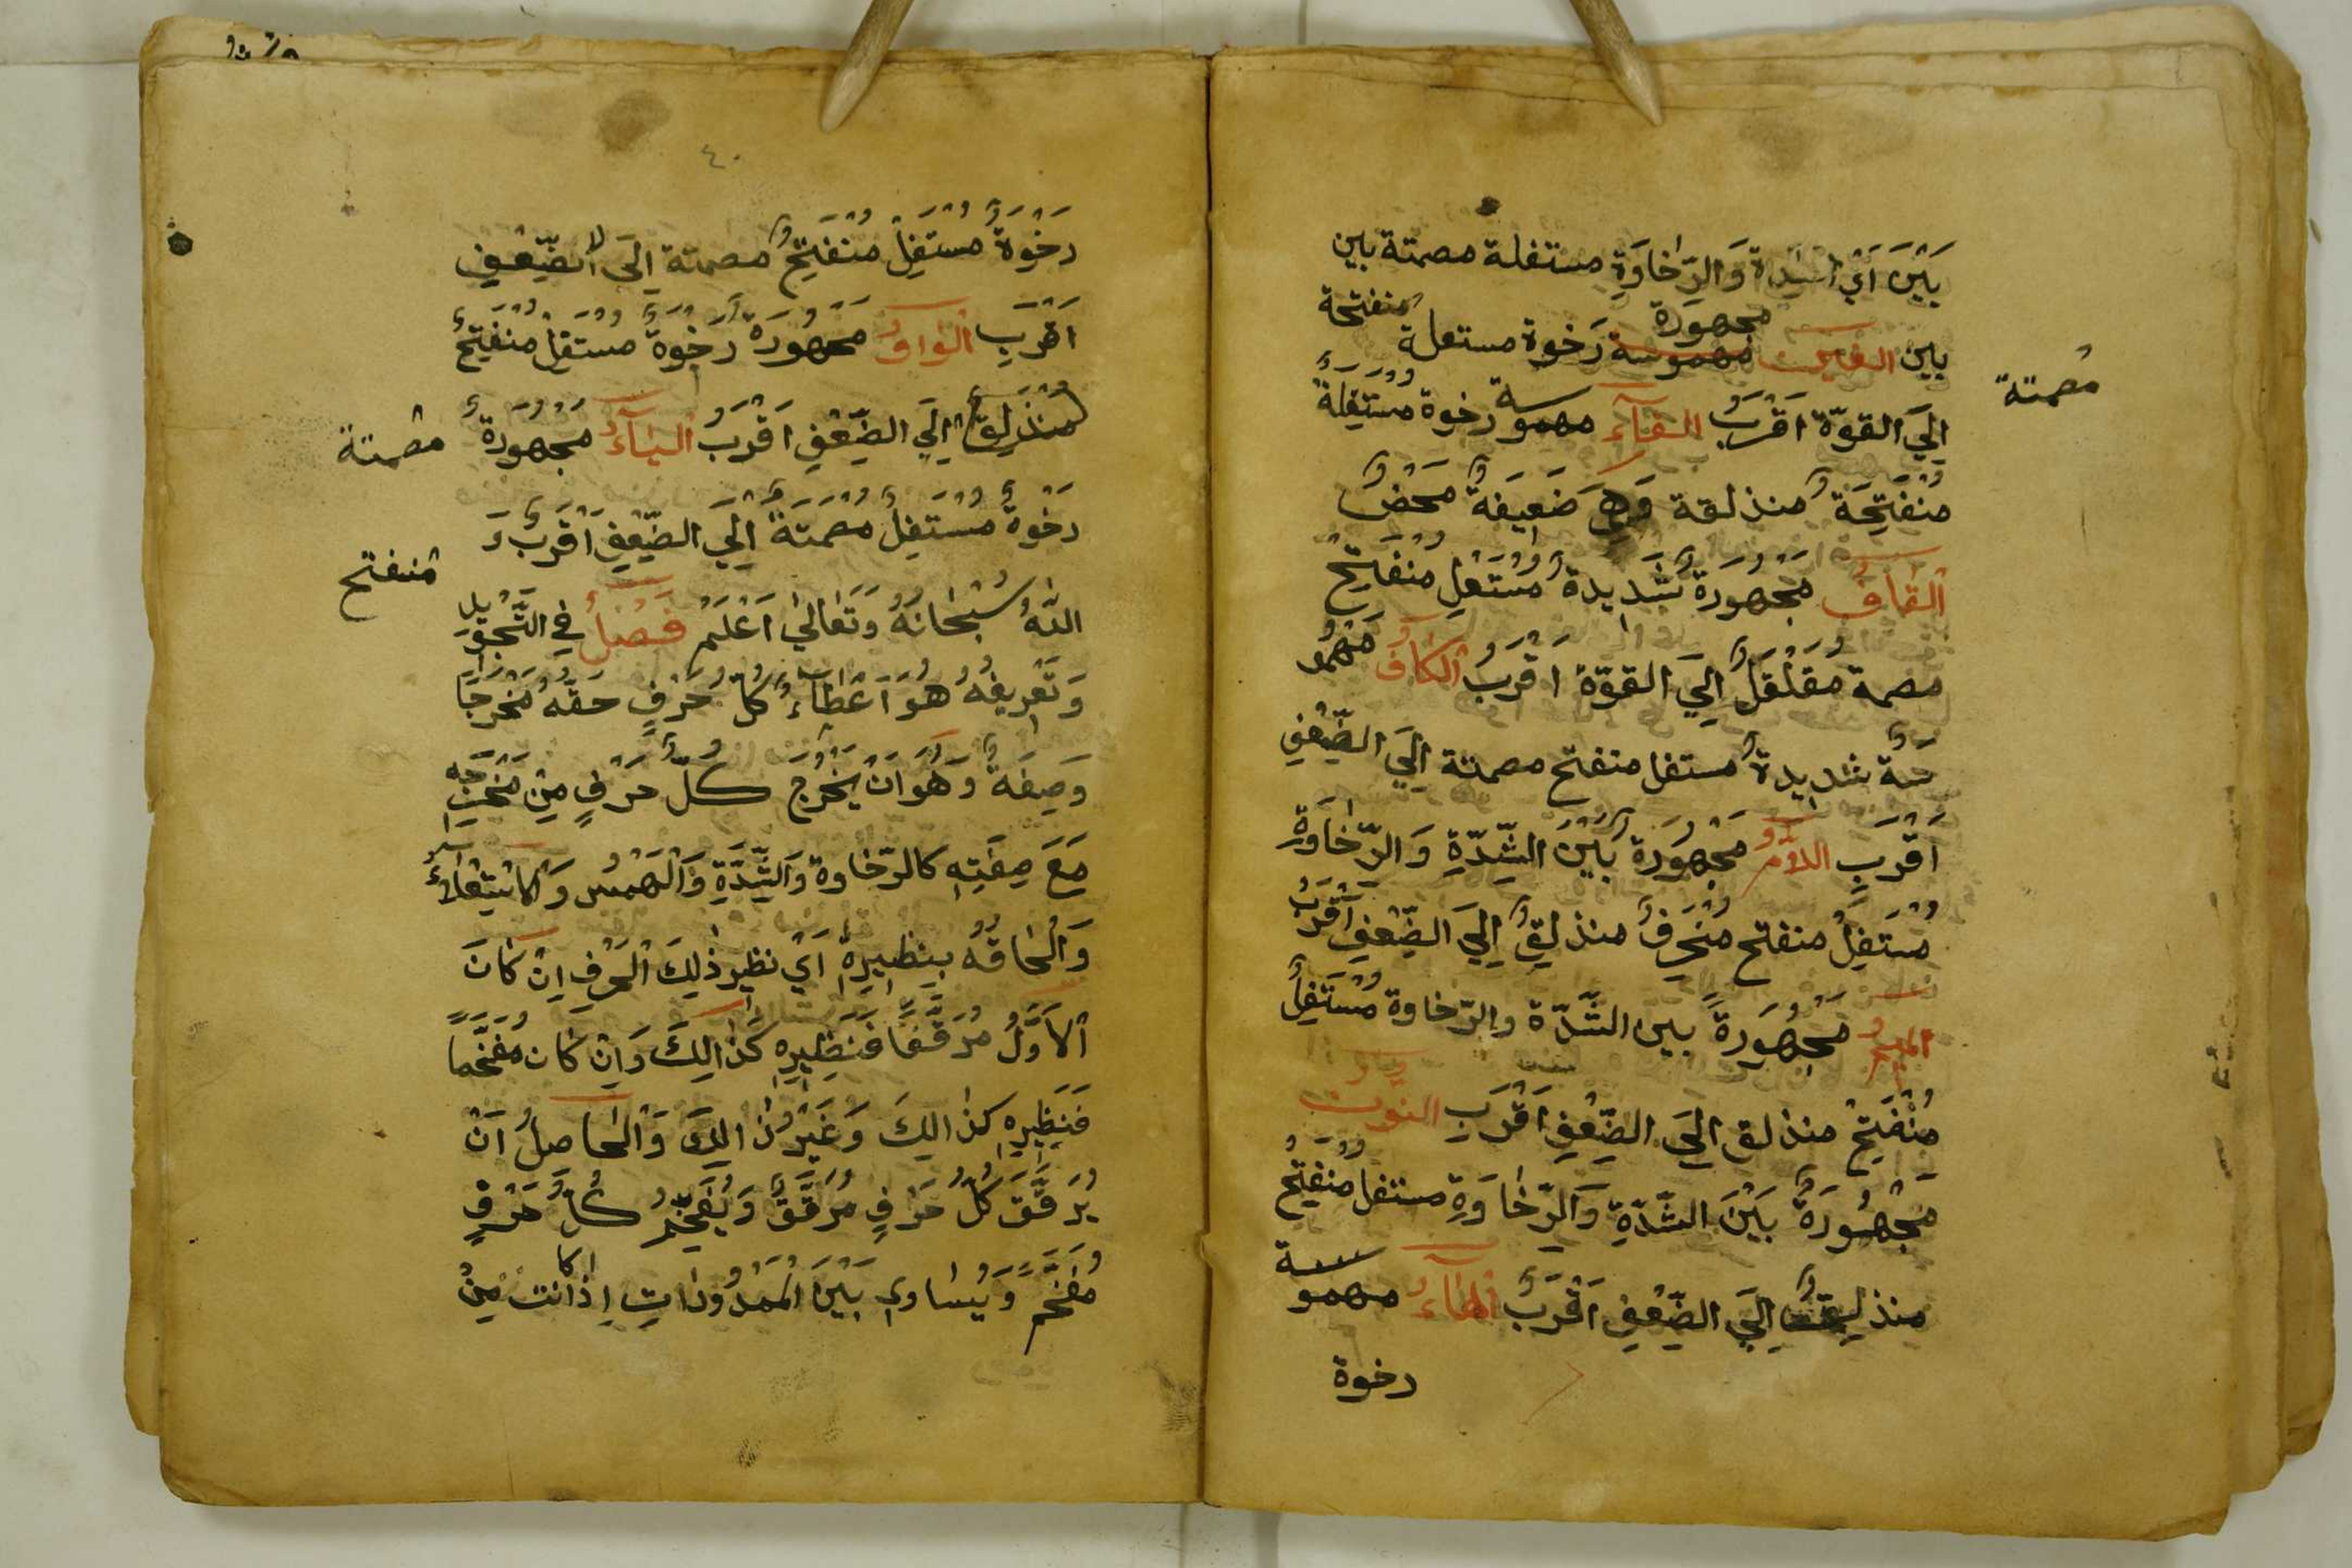 بَيْنَ اَيْ الشدة وَالرِّخَاوَةِ مستفلة مصمتة بين
بين الغين مهموسة مجهورة رَخوة مستعلة منفتحة
مصمتة
اِلَي القوّة اَقْرَبُ الفآءُ مهموسة رخوة مُسْتَفِلَةٌ
مُنْفَتِحَةٌ منذلقة وَهِيَ ضَعِيفَةٌ مَحْضٌ
القافُ مَجْهُورَةٌ شَدِيدةٌ مُسْتَعْلٍ مُنْفَتِحٌ
مصمة مُقَلْقَلٌ اِلَي القوّة اَقْرَبُ الكافُ مَهْمُو
سَةٌ شديدةٌ مستفل منفتح مصمتة اِلَي الضِّعْفِ
اَقْرَبِ اللآمُ مَجْهُورَةٌ بَيْنَ الشِّدّةِ وَالرِّخَاوَةِ
مُسْتَفِلْ منفتح مُنْحَرِفٌ منذلِقٌ اِلَي الضِّعْفِ اَقْرَبُ
الميمُ مَجْهُورَةٌ بين الشَّدّة والرّخاوة مُسْتَفِلٌ
مُنْفَتِحٌ منذلق الي الضِّعْفِ اَقْرَبِ النون
مَجْهُورَةٌ بَيْنَ الشَّدّةِ وَالرِّخَاوَةِ مستفل مُنْفَتِحٌ
منذلِقٌ اِلَي الضِّعْفِ اَقْرَبُ الهآءُ مهموسة
رخوة
٤٠
رَخْوَةٌ مُسْتَفِلٌ مُنْفَتِحٌ مصمتة اِلَي الضِّعْفِ
اَقْرَبِ الواوُ مَجْهُورَةٌ رَخْوَةٌ مُسْتَفِلٌ مُنْفَتِحٌ
مُنْذَلِقٌ اِلَي الضِّعْفِ اَقْرَبُ اليآءُ مَجْهُورَةٌ
مصمتة
رَخْوَةٌ مُسْتَفِلٌ مُصْمَتَةٌ اِلَي الضِّعْفِ اَقْرَبُ وَ
منفتح
اللّهُ سُبْحَانَهُ وَتَعَالٰي اَعْلَمْ فَصْلٌ فِي التَّجْوِيدِ
وَتَعْرِيفُهُ هُوَ اَعْطَآءُ كُلِّ حَرْفٍ حَقَّهُ مَخْرَجًا
وَصِفَةً وَهُوَ اَنْ يَخْرُجَ كُلُّ حَرْفٍ مِنْ مَخْرَجِهِ
مَعَ صِفَتِهِ كالرّخاوة وَالشِّدَّةِ وَالْهَمْسِ وَالاسْتِعْلآءُ
وَالْحَاقُهُ بِنَظِيرِهِ اَيْ نظير ذٰلِكَ الْحَرْفِ اِنْ كَانَ
الاَوَّلُ مُرَقَّقًا فَنَظِيرِهِ كَذَالِكَ وَاِنْ كَان مُفَخَّمًا
فَنَظِيرِهِ كذالِكَ وَغَيْرُ ذَالِكَ وَالْحَاصِلُ اَنْ
يُرَقَّقَ كُلُّ حَرْفٍ مُرَقَّقٌ وَيُفَخَّمُ كُلُّ حَرْفٍ
مُفَخَّمٌ وَيُسَاوِي بَيْنَ الْمَمْدُودَاتِ اِذَا كانت مِنْ